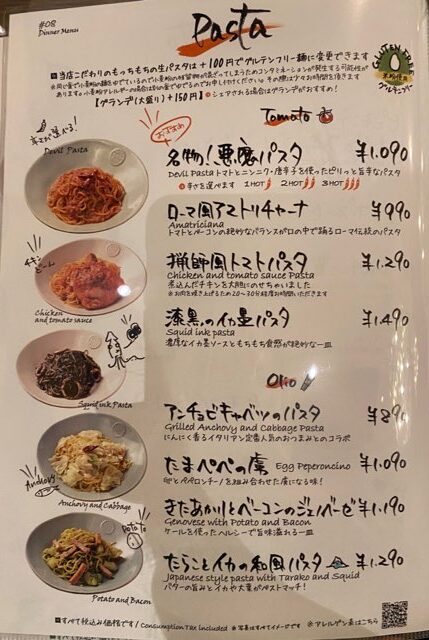 #08
Dinner Menu
Pasta
当店こだわりのもっちもちの生パスタは+100円でグルテンフリー麺に変更できます
GLUTEN FREE
米粉使用
グルテンフリー
【グランデ(大盛り)+150円】シェアされる場合はグランデがおすすめ!
おすすめ
Tomato
辛さ選べる!
Devil Pasta
名物!悪魔パスタ ¥1.090
Devil Pasta トマトとニンニク・唐辛子を使ったピリっと旨辛なパスタ
辛さを選べます 1HOT 2HOT 3HOT
ローマ風アマトリチャーナ ¥990
Amatriciana
トマトとベーコンの絶妙なバランスが口の中で踊るローマ伝統のパスタ
チキンどーん
Chicken
and tomato sauce
猟師風トマトパスタ ¥1.290
Chicken and tomato sauce Pasta
煮込んだチキンを大胆にのせちゃいました
※お肉を焼き上げるため20~30分程度お時間いただきます
漆黒のイカ墨パスタ ¥1.490
Squid ink pasta
濃厚なイカ墨ソースともちもち食感が絶妙な一皿
Squid ink Pasta
Olio
アンチョビキャベツのパスタ ¥890
Grilled Anchovy and Cabbage Pasta
にんにく香るイタリアン定番人気のおつまみとのコラボ
Anchovy
Anchovy and Cabbage
たまペペの虜 Egg Peperoncino ¥1.090
卵とペペロンチーノを組み合わせた虜になる味!
きたあかりとベーコンのジェノベーゼ ¥1.190
Genovese with Potato and Bacon
ケールを使ったヘルシーで旨味溢れる一皿
Potato
Potato and Bacon
たらことイカの和風パスタ ¥1.290
Japanese style pasta with Tarako and Squid
バターの旨みとイカや大葉がベストマッチ!
すべて税込み価格です/Consumption Tax included ※写真はすべてイメージです ※アレルゲン表はこちら